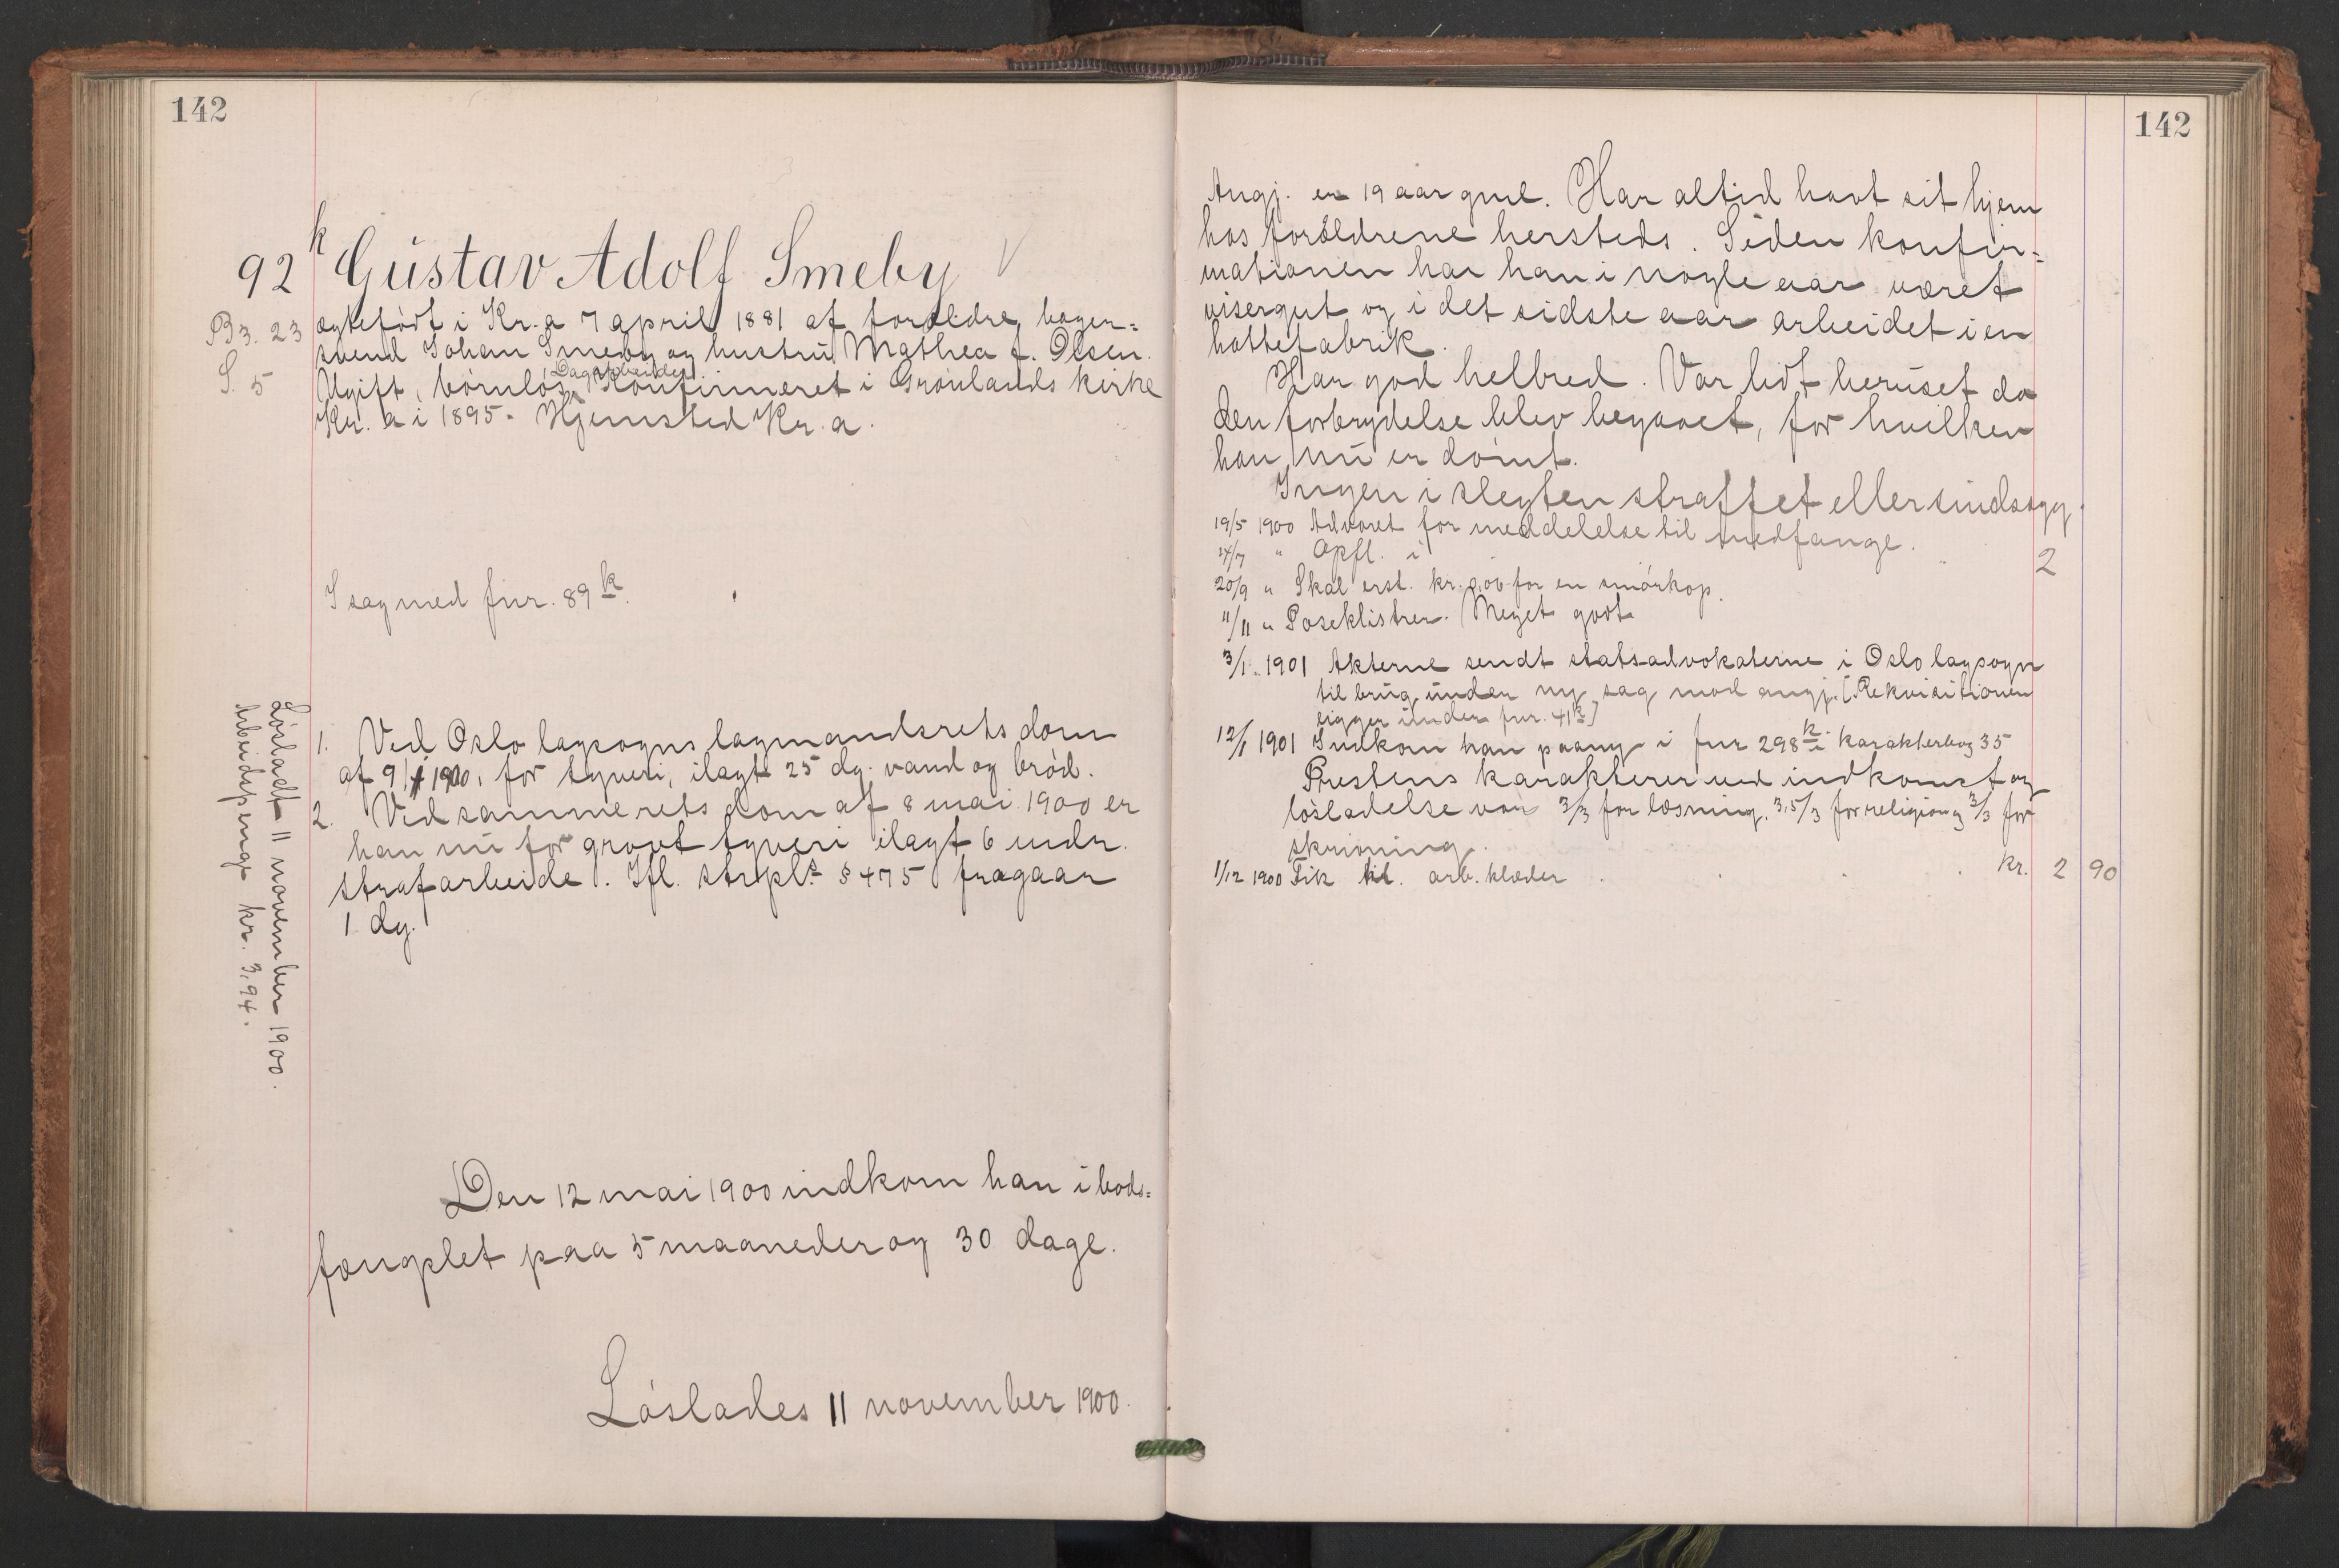 142
92 k Gustav Adolf Smeby
B3. 23
S. 5
ægtefødt i Kr.a 7 april 1881 af forældre, bager-
svend Johan Smeby og hustru Mathea f. Olsen.
Ugift, børnløs, Dagarbeider. Konfirmeret i Grønlands kirke
Kr. a i 1895. Hjemsted Kr. a.
I sag med fnr. 89 k.
1. Ved Oslo lagsogns lagmandsrets dom
af 9/1 1900, for tyveri, ilagt 25 dg. vand og brød.
2. Ved samme rets dom af 8 mai 1900 er
han nu for grovt tyveri ilagt 6 mdr.
strafarbeide. Ifl. strpl. § 475 fragaar
1 dg.
Løsladt 11 november 1900.
Arbeidspenge kr. 3,94.
Den 12 mai 1900 indkom han i bods-
fengslet paa 5 maaneder og 30 dage.
Løslades 11 november 1900.
142
Angj. er 19 aar gml. Har altid havt sit hjem
hos forældrene hersteds. Siden konfir-
mationen har han i nogle aar været
visergut og i det sidste aar arbeidet i en
hattefabrik.
Har god helbred. Var lidt beruset da
den forbrydelse blev begaaet, for hvilken
han nu er dømt.
Ingen i slegten straffet eller sindssyg.
19/5 1900 Advaret for meddelelse til medfange.
24/7 " Opfl. i 2
20/9 " Skal erst. kr. 0,06 for en smørkop.
11/11 " Poseklistrer. Meget godt
3/1. 1901 Akterne sendt statsadvokaterne i Oslo lagsogn
til brug under ny sag mod angj. [Rekvisitionen
ligger under fnr. 41 k]
12/1 1901 Indkom han paany i fnr 298 k i karakterbog 35
Prestens karakterer ved indkomst og
løsladelse var 3/3 for læsning, 3,5/3 for religion og 3/3 for
skrivning.
1/12 1900 Fik til. arb. klæder . . . kr. 2 90